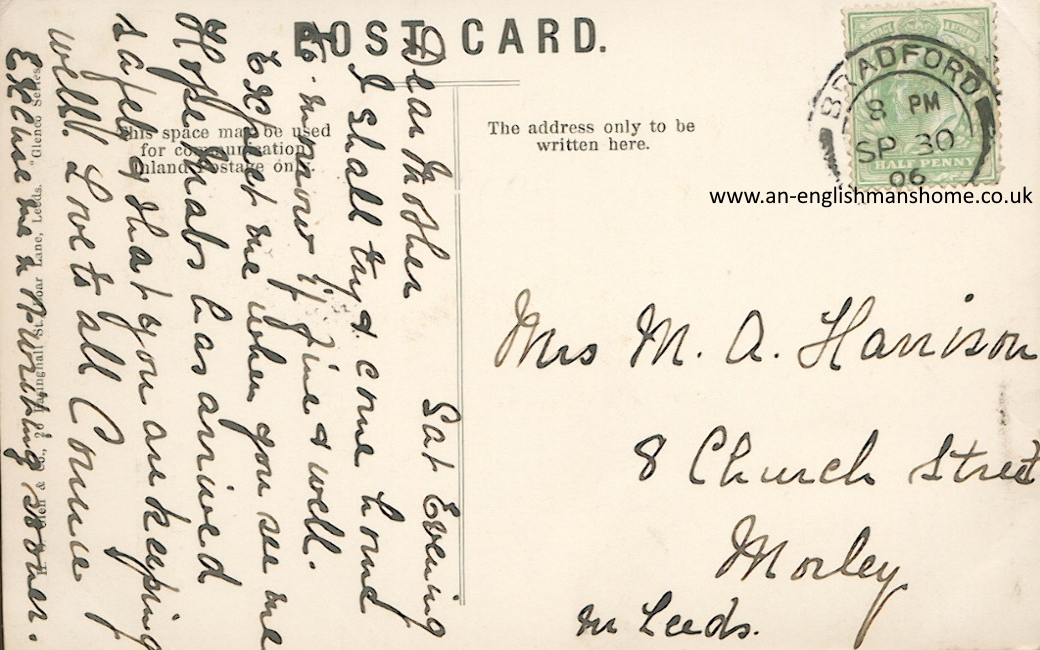 POST CARD.
This space may be used
for communication
Inland Postage only.
The address only to be
written here.
BRADFORD
8 PM
SP 30
06
HALF PENNY
www.an-englishmanshome.co.uk
Sat Evening
Dear Mother
I shall try & come home
to-morrow if fine & well.
Expect me when you see me
Hope Mabs has arrived
safely & that you are keeping
well. Love to all Connie
Excuse me n writing sooner.
Mrs M. A. Harrison
8 Church Street
Morley
nr Leeds.
& Co., Lane, Leeds. "Glenco Series